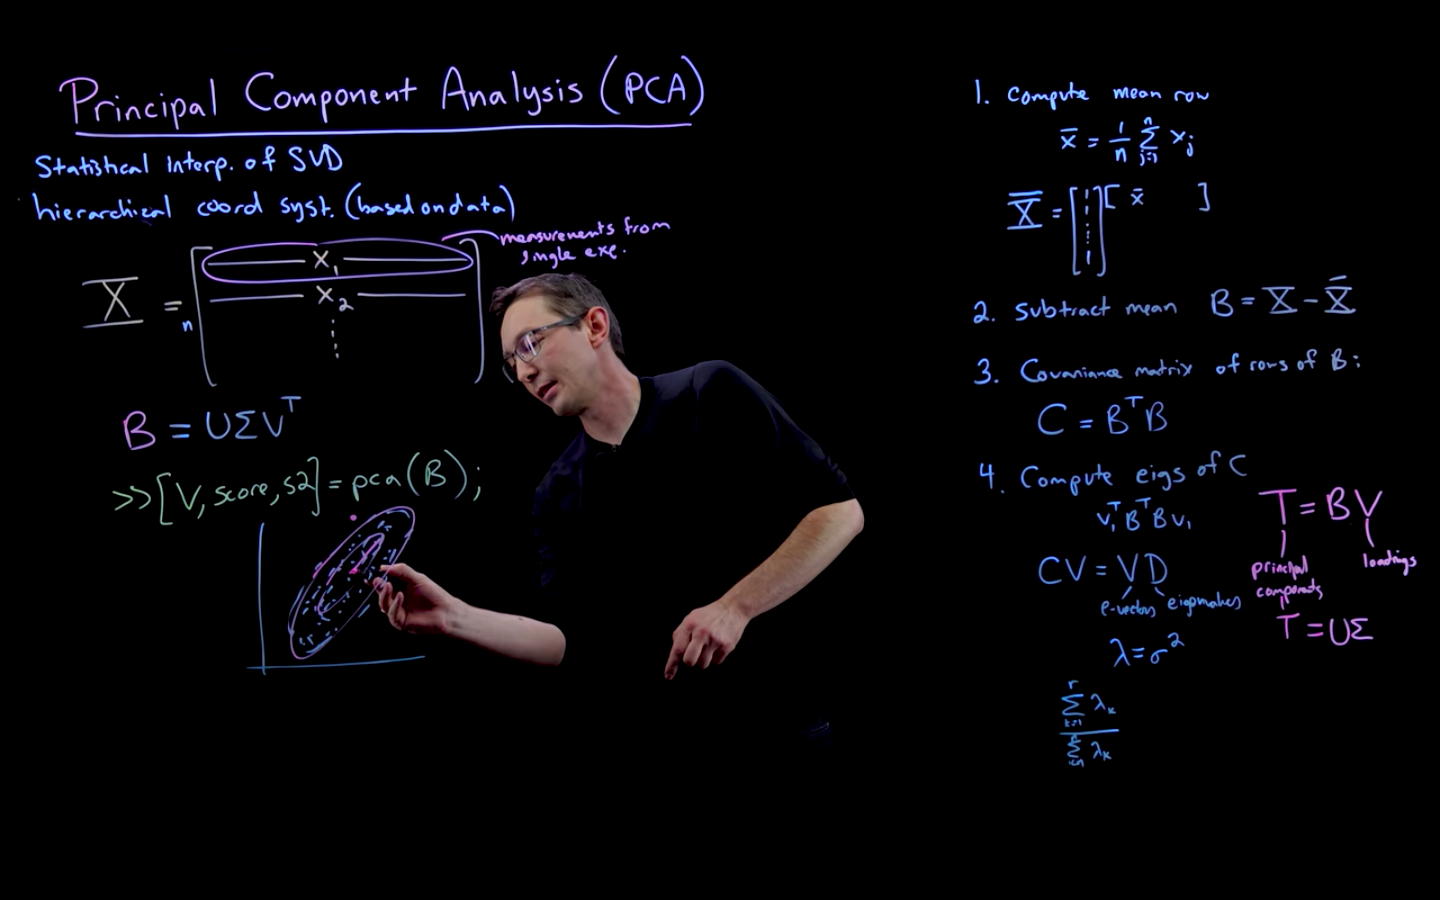 Principal Component Analysis (PCA)
Statistical Interp. of SVD
hierarchical coord syst. (based on data)
measurements from
single exp.
X = [ — x₁ —
n — x₂ —
⋮ ]
B = UΣVᵀ
>> [V, score, s2] = pca(B);
1. Compute mean row
x̄ = 1/n Σⱼ₌₁ⁿ xⱼ
X̄ = [1 ⋮ 1] [ x̄ ]
2. Subtract mean B = X − X̄
3. Covariance matrix of rows of B:
C = BᵀB
4. Compute eigs of C
v₁ᵀBᵀBv₁
CV = VD
e-vectors
λ = σ²
Σₖ₌₁ʳ λₖ
Σ λₖ
T = BV
principal
components
loadings
T = UΣ